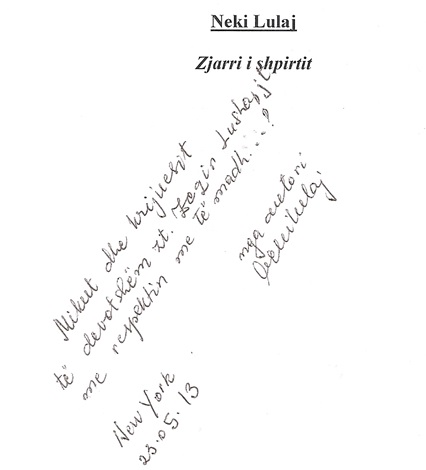 Neki Lulaj
Zjarri i shpirtit
Mikut dhe krijuesit
të devotshëm zt. Lazër Lushajt
me respektin me të madh...!
nga autori
New York
23.05.13